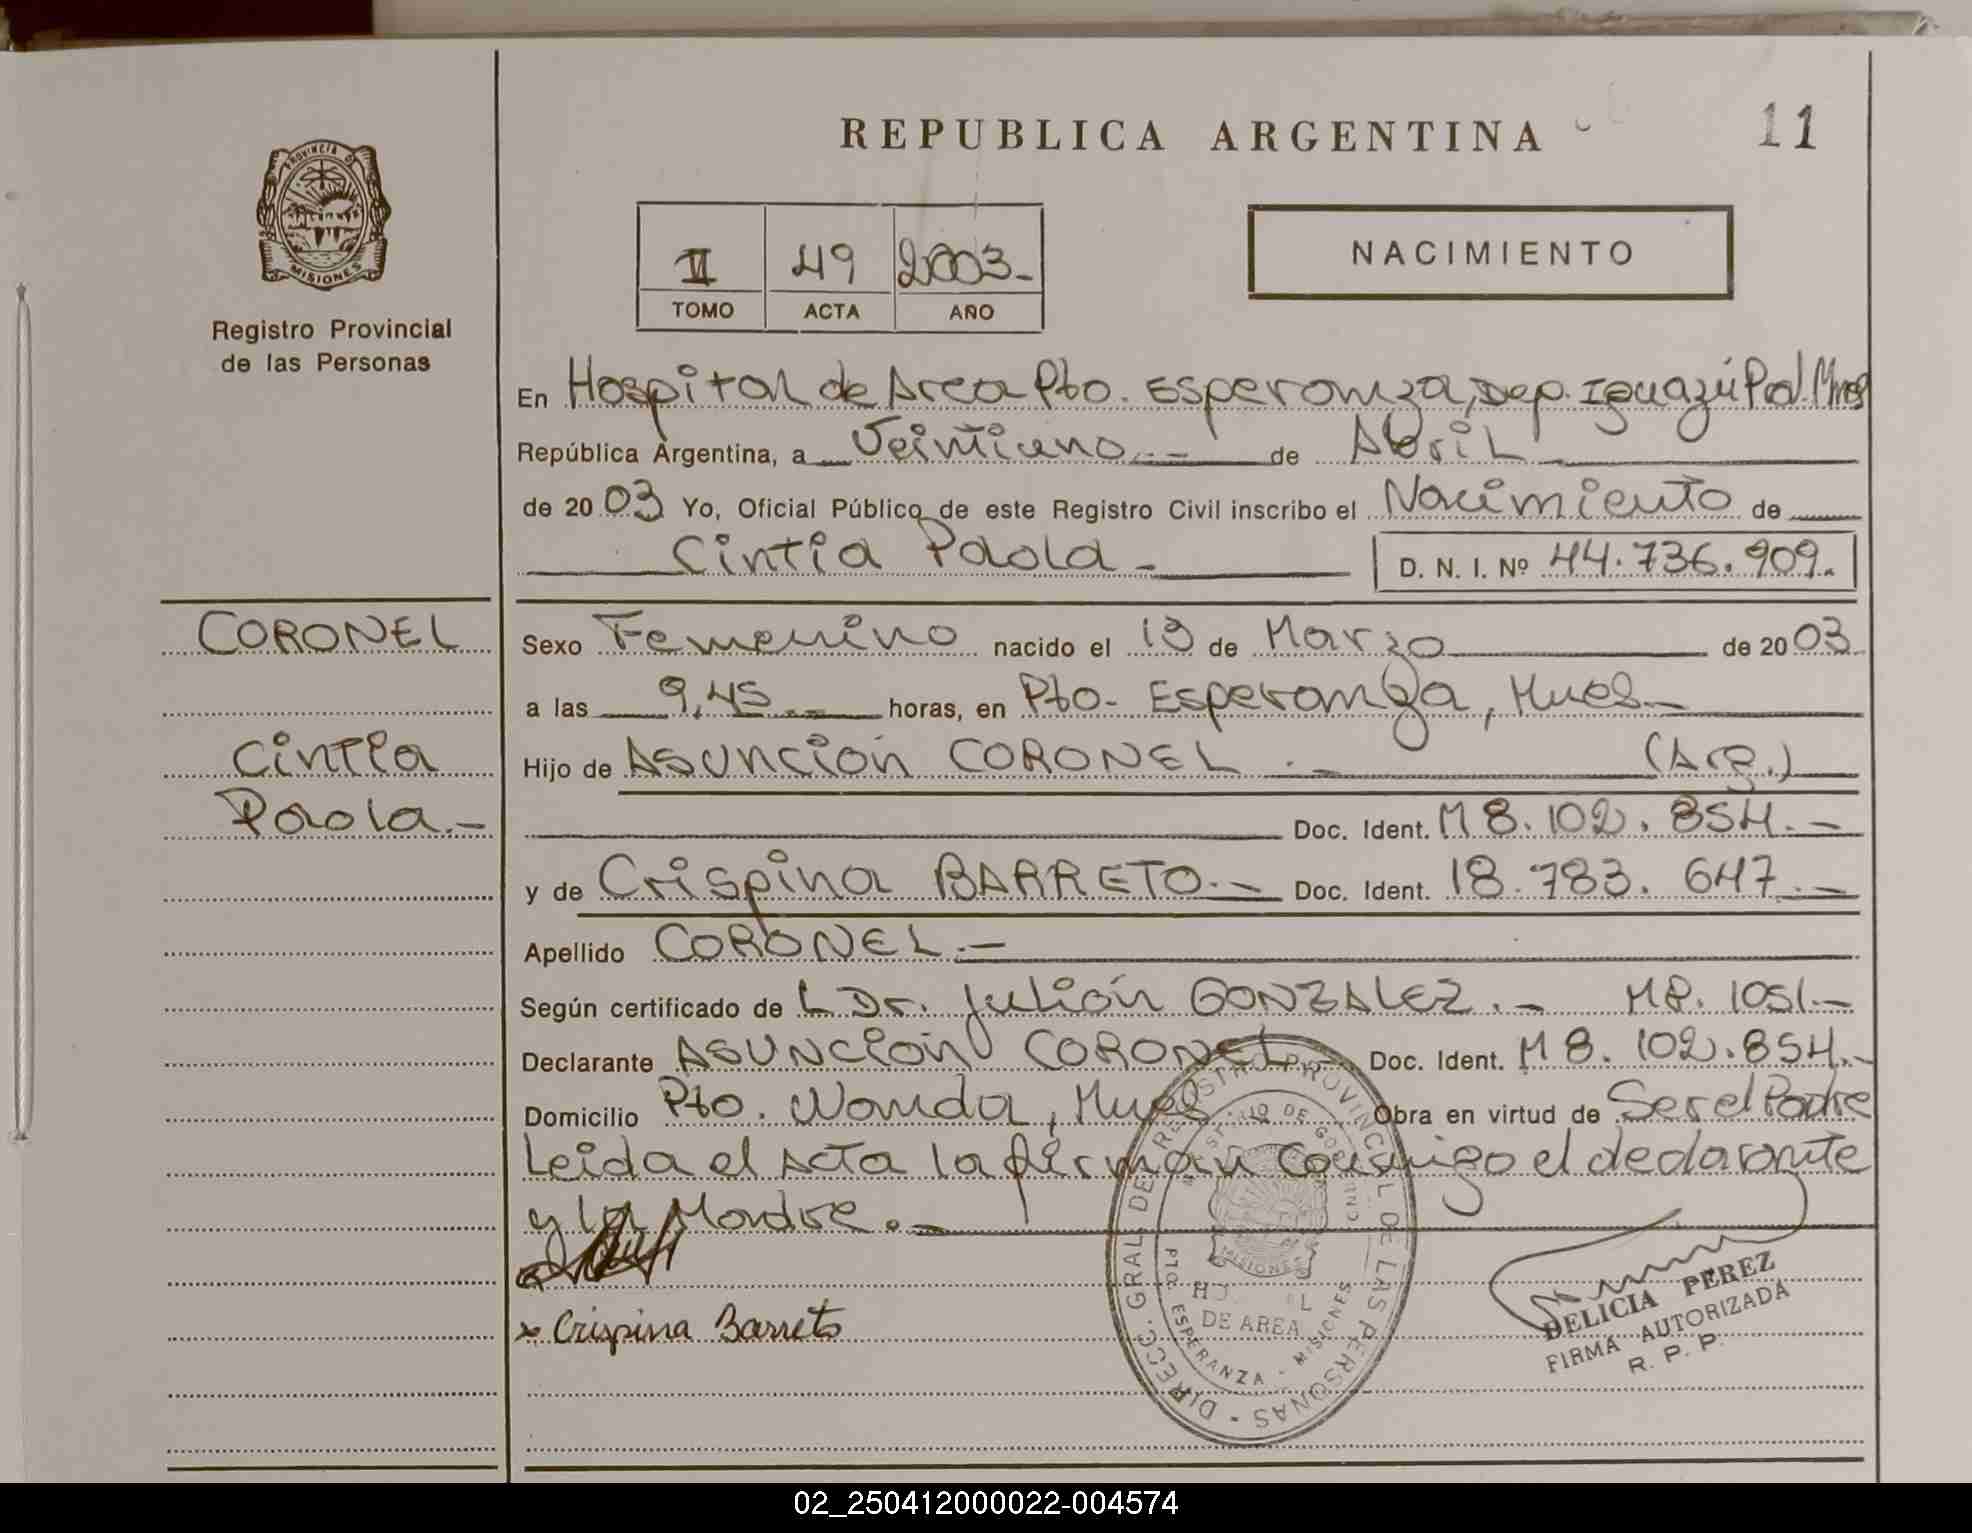 REPUBLICA ARGENTINA
11
PROVINCIA DE
MISIONES
Registro Provincial
de las Personas
II 49 2003.-
TOMO ACTA AÑO
NACIMIENTO
En Hospital de Area Pto. Esperanza, Dep. Iguazú Pcia. Mnes
República Argentina, a Veintiuno.- de Abril
de 2003 Yo, Oficial Público de este Registro Civil inscribo el Nacimiento de
Cintia Paola.- D. N. I. Nº 44.736.909.
CORONEL
Cintia
Paola.-
Sexo Femenino nacido el 19 de Marzo de 2003
a las 9,45.- horas, en Pto. Esperanza, Mnes.-
Hijo de Asunción CORONEL.- (Arg.)
Doc. Ident. M 8.102.854.-
y de Crispina BARRETO.- Doc. Ident. 18.783.647.-
Apellido CORONEL.-
Según certificado de L Dr. Julián GONZALEZ.- MP. 1051.-
Declarante Asunción CORONEL Doc. Ident. M 8.102.854.-
Domicilio Pto. Wanda, Mnes Obra en virtud de Ser el Padre
Leida el Acta la firman conmigo el declarante
y la Madre.-
x Crispina Barreto
DIRECC. GRAL. DE REGISTRO PROVINCIAL DE LAS PERSONAS
DE AREA
PTO. ESPERANZA - MISIONES
DELICIA PEREZ
FIRMA AUTORIZADA
R. P. P.
02_250412000022-004574